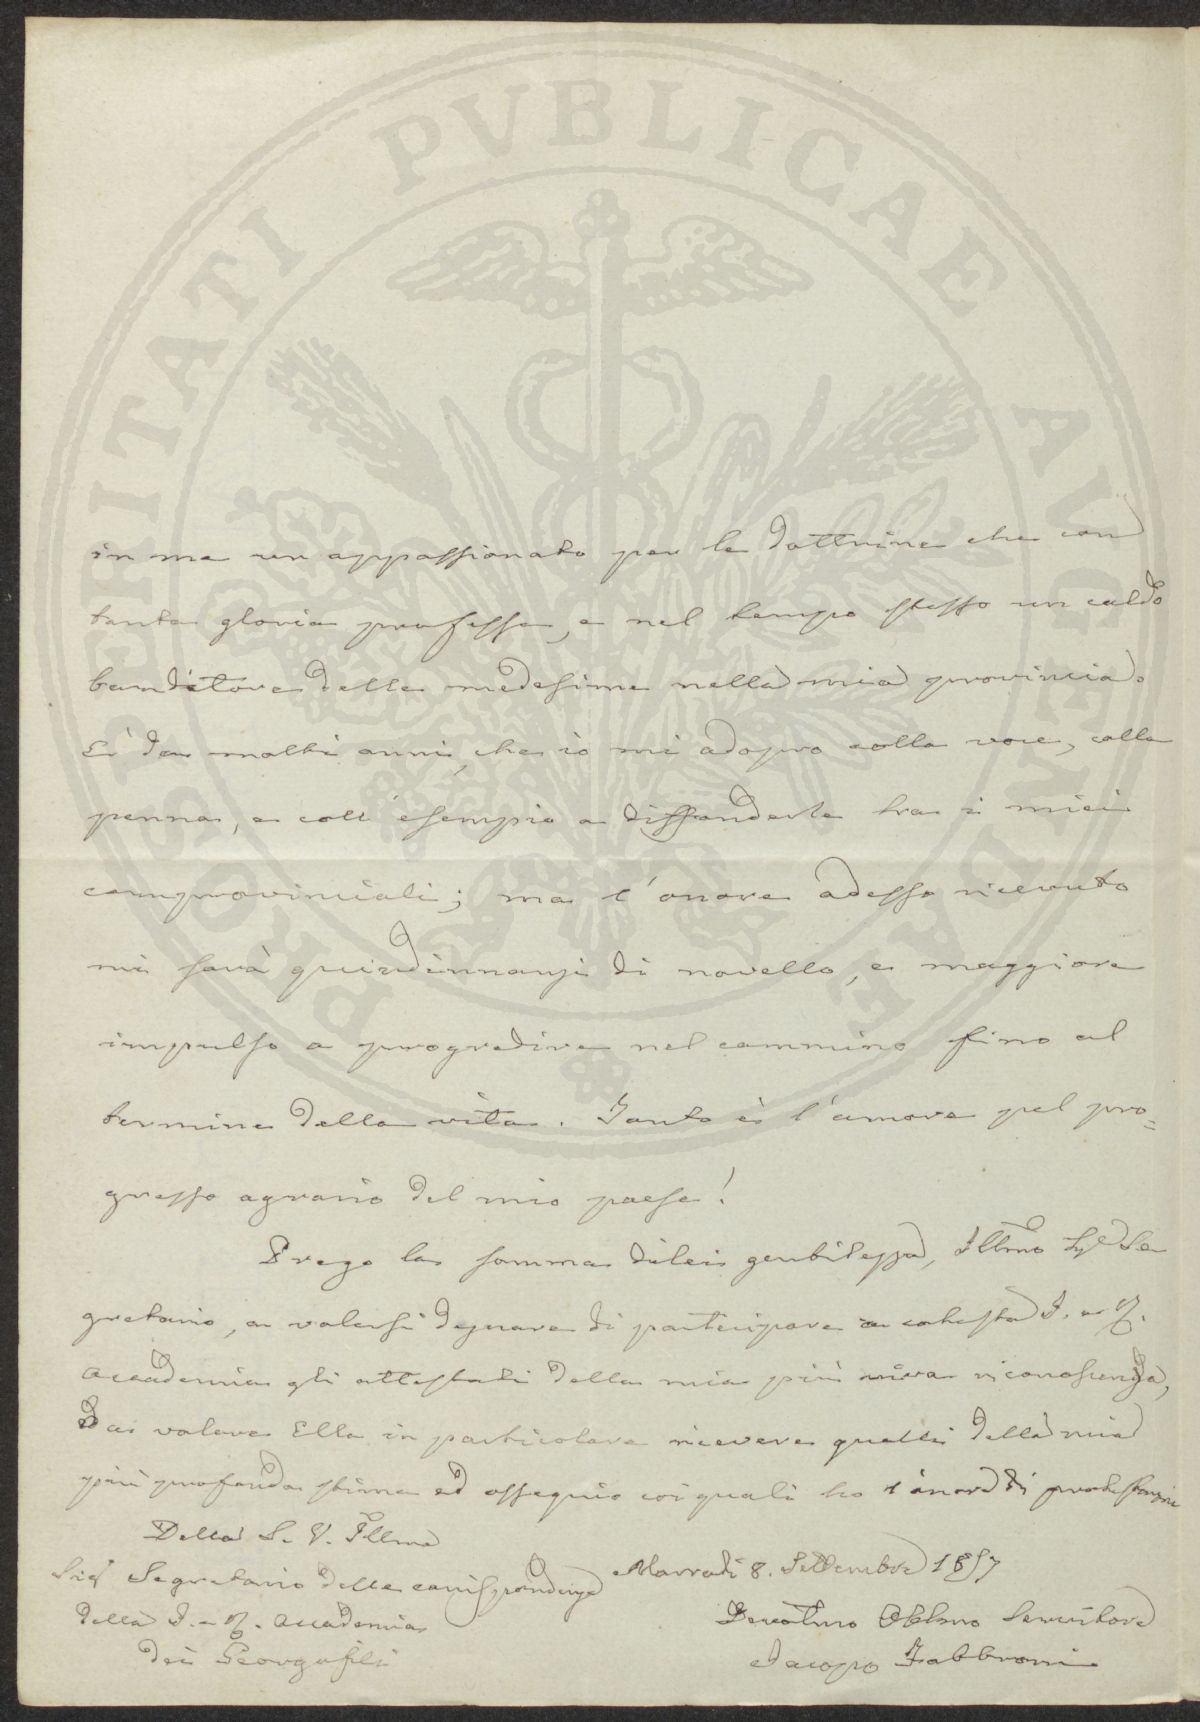 PROSPERITATI PVBLICAE AVGENDAE
in me un appassionato per le dottrine che con
tanta gloria professa, e nel tempo stesso un caldo
banditore delle medesime nella mia provincia.
E' da molti anni, che io mi adopro colla voce, colla
penna, e coll'esempio a diffonderle tra i miei
comprovinciali; ma l'onore adesso ricevuto
mi sarà quindinnanzi di novello, e maggiore
impulso a progredire nel cammino fino al
termine della vita. Tanto è l'amore pel pro=
gresso agrario del mio paese!
Prego la somma di lei gentilezza, Illmo Sigr Se
gretario, a volersi degnare di partecipare a cotesta I. e R.
Accademia gli attestati della mia più viva riconoscenza,
e a volere Ella in particolare ricevere quelli della mia
più profonda stima ed ossequio coi quali ho l'onore di protestarmi
Della S. V. Illma
Sigr Segretario delle corrispondenze
della I. e R. Accademia
dei Georgofili
Marradi 8. Settembre 1857
Devotmo Obblmo Servitore
Jacopo Fabbroni